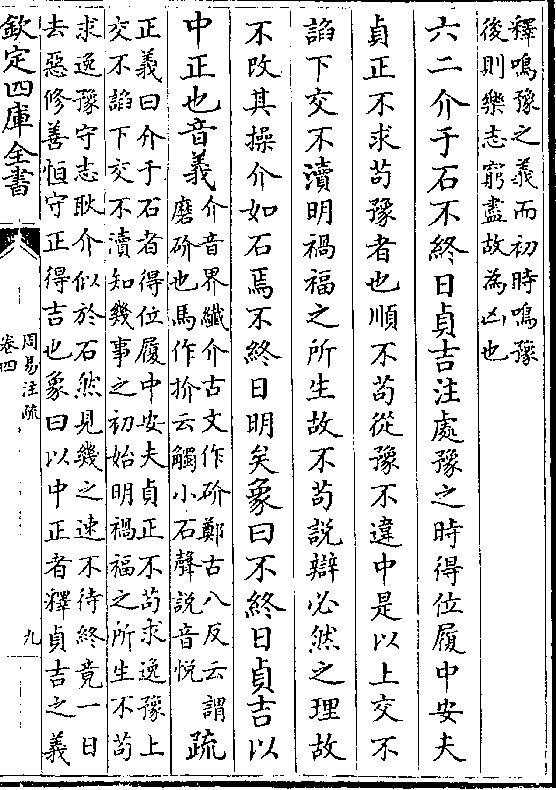 釋鳴豫之義而初時鳴豫
後則樂志窮盡故為凶也
六二介于石不終日貞吉注處豫之時得位履中安夫
貞正不求苟豫者也順不苟從豫不違中是以上交不
諂下交不瀆明禍福之所生故不苟說辯必然之理故
不改其操介如石焉不終日明矣象曰不終日貞吉以
中正也音義
介音界纖介古文作砎鄭古八反云謂
磨砎也馬作扴云觸小石聲說音悅
疏
正義曰介于石者得位履中安夫貞正不苟求逸豫上
交不諂下交不瀆知幾事之初始明禍福之所生不苟
求逸豫守志耿介似於石然見幾之速不待終竟一日
去惡修善恒守正得吉也象曰以中正者釋貞吉之義
欽定四庫全書
周易注疏
卷四
九